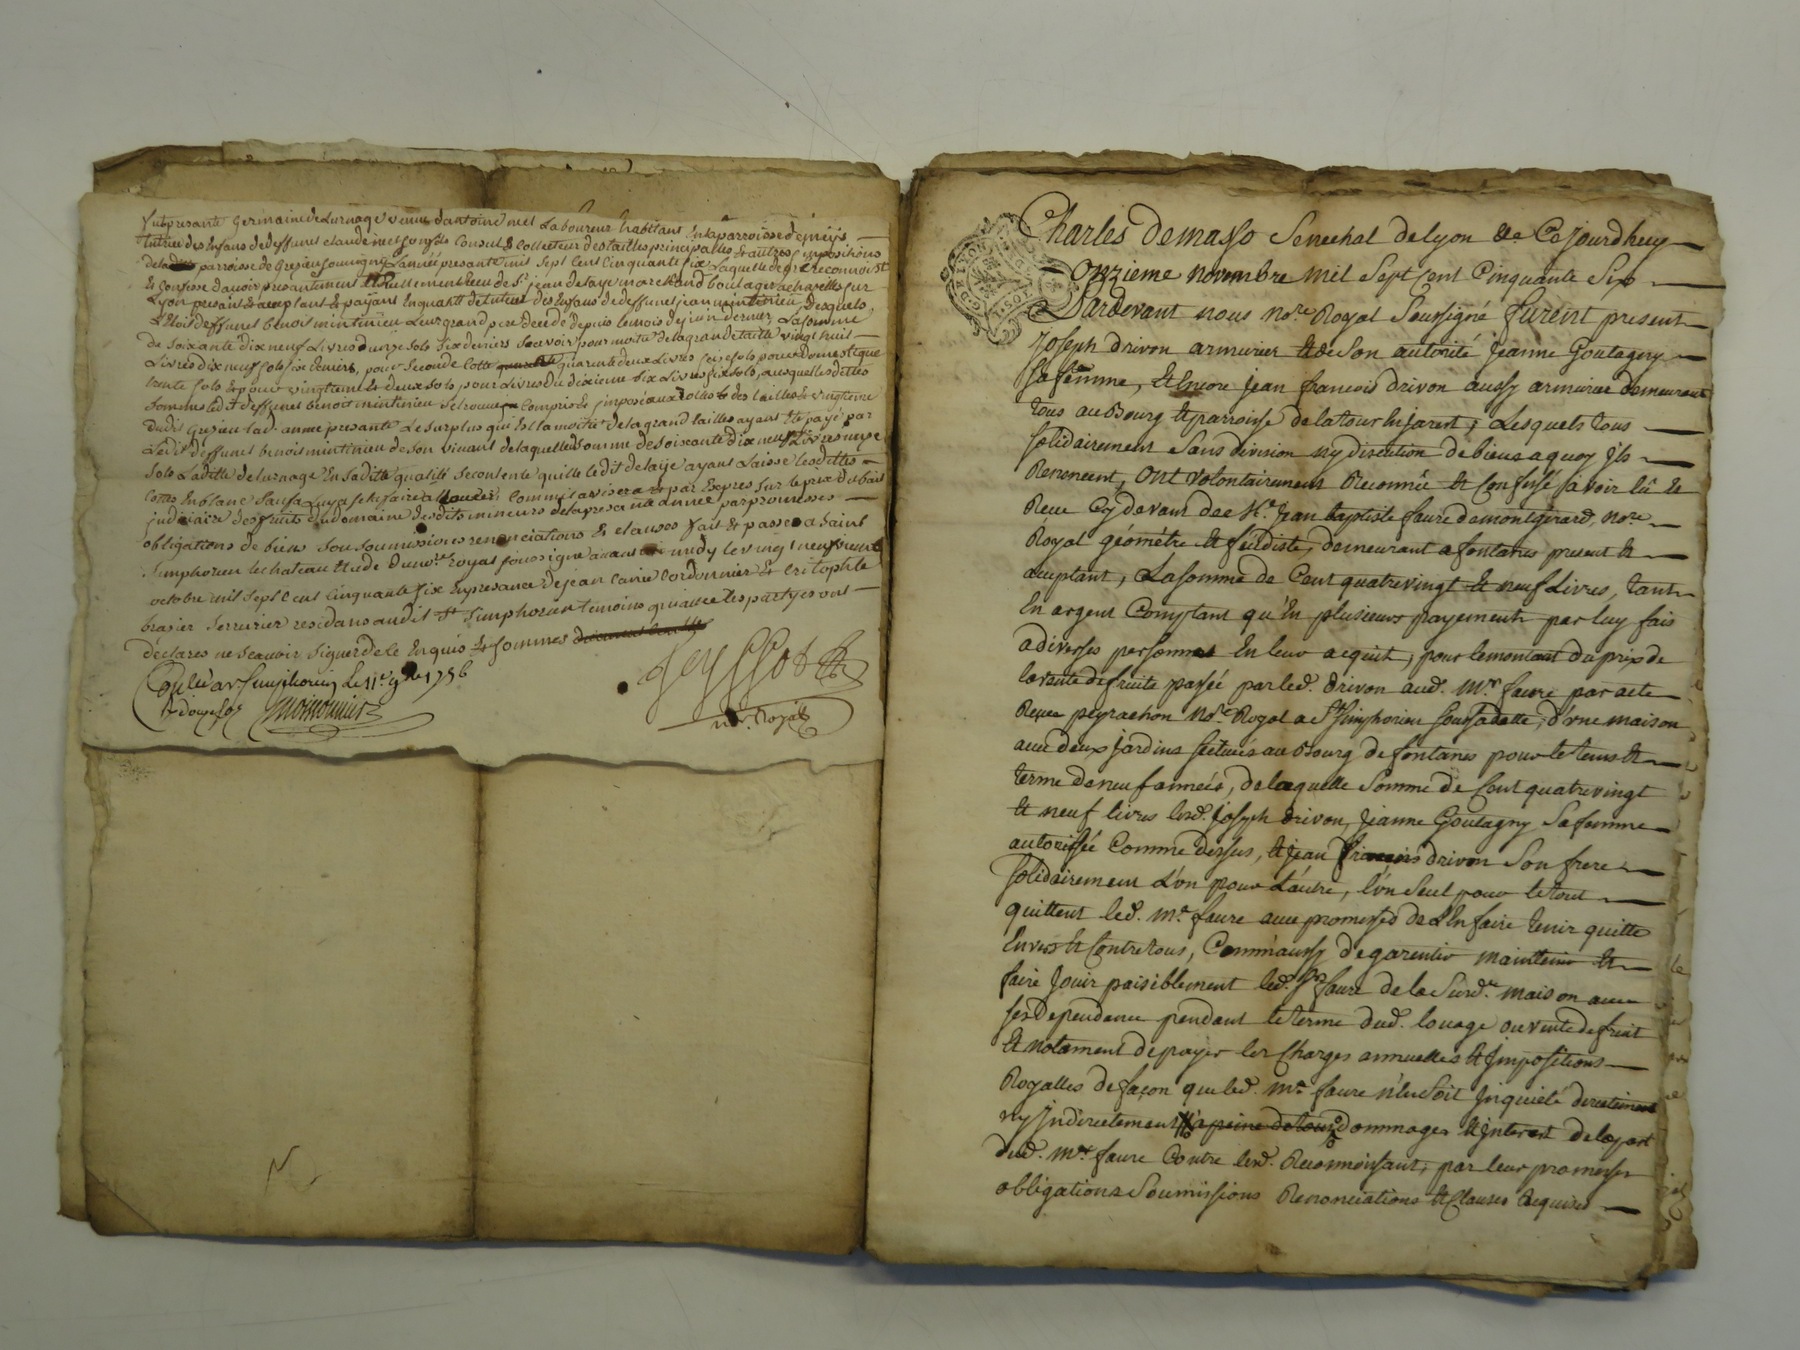 fut presante Germaine de Lurnage veuve d'antoine nect Laboureur habitant En la parroisse de
tutrice des Enfans de deffunct claude nect son fils Consul & Collecteur des tailles principalles & autres Impositions
de la parroisse de Grezieu Lannée presante mil sept Cent Cinquante six Laquelle de gré reconnoist
Et Confesse d'avoir presantement Reellement Receu de Sr. jean delaye marchand boulager a chazelles sur
Lyon presant & aceptant & payant En qualité de tuteur des Enfans de deffunct jean mintinieu, desquels
Et dois deffunct benoist mintinieu Leur grand pere decedé depuis le mois de juin dernier, La somme
de soixante dix neuf Livres onze sols six deniers scavoir pour moitié de la grande taille vingt huit
Livres dix neuf sols six deniers, pour seconde Cotte quarente deux Livres seize sols pour domestique
trente sols & pour vingtieme & deux sols, pour Livres du dixieme six Livres six sols, ausquelles dittes
sommes ledit deffunct benoist mintinieu se trouve Compris & jmposé aux rolles & des tailles & vingtieme
dudit Grezieu lad. année presante Le surplus qui Est la moitié de la grand tailles ayant Eté payé par
Ledit deffunct benoist mintinieu de son vivant de laquelle somme de soixante dix neuf Livres onze
sols Laditte de lurnage En saditte qualité se contente quitte ledit delaye ayant Laissé les dittes
Cottes En blanc sauf a Luy a se les faire allouer, Comme il avisera & par Expres sur le prix du bail
judiciaire des fruits du domaine desdits mineurs de la presante année par promesses
obligations de biens sousoumissions renonciations & clauses fait & passé a Saint
simphorien le chateau Etude du nore. royal soussigné avant midy le vingt neufvieme
octobre mil sept Cent Cinquante six En presance de jean Cordonnier & Cristophle
brasier serrurier residans audit St. simphorien temoins qui avec les partyes ont
déclarés ne scavoir signer de ce Enquis & sommes
Coulé a St simphorien Le 11e. 9bre 1756
R. douze sols
nore. Royal
Charles demasso Senechal de lyon &c. Cejourdhuy
onzieme novembre mil Sept cent Cinquante Six
Pardevant nous nore. Royal Soussigné furent present
Joseph drivon armurier & de Son autorité Jeanne Goutagny
Sa femme, & Encore jean francois drivon aussy armurier demeurant
tous au Bourg & parroisse de la tour En jarest, Lesquels tous
solidairement Sans division ny discution de biens a quoy jls
Renoncent, ont volontairement Reconnû & Confessé avoir Eû &
Receu Cy devant de Me. Jean baptiste faure de montgirard, nore.
Royal géométre & feudiste, demeurant a fontanes present &
aceptant, La somme de Cent quatrevingt & neuf Livres, tant
En argent Comptant qu'En plusieurs payements par luy fais
a diverses personnes En leur acquit, pour le montant du prix de
la vante de fruits passée par led. drivon aud. Me. faure par acte
Receu peyrachon nore. Royal a St. simphorien sous sa datte, d'une maison
avec deux jardins scitués au Bourg de fontanes pour le tems &
terme de neuf années, de laquelle Somme de Cent quatre vingt
& neuf livres lesd. joseph drivon, jeanne Goutagny Sa femme
autorisée Comme dessus, & jean francois drivon Son frere
solidairement L'un pour L'autre, l'un Seul pour le tout
quittent led. Me. faure avec promesses de L'En faire tenir quitte
Envers & Contre tous, Comm'aussy de garentir maintenir &
faire Jouir paisiblement led. Me. faure de la Susd.e maison avec
ses dependances pendant le terme dud. louage ou vente de fruit
& notament de payer les Charges annuelles & Jmpositions
Royalles de façon que led. Me. faure n'En Soit Jnquieté directement
ny Jndirectement a peine de tous dommages & Jnterest de la part
dud. Me. faure Contre lesd. Reconnoissant, par leur promesses
obligations Soumissions Renonciations & Clauses Requises